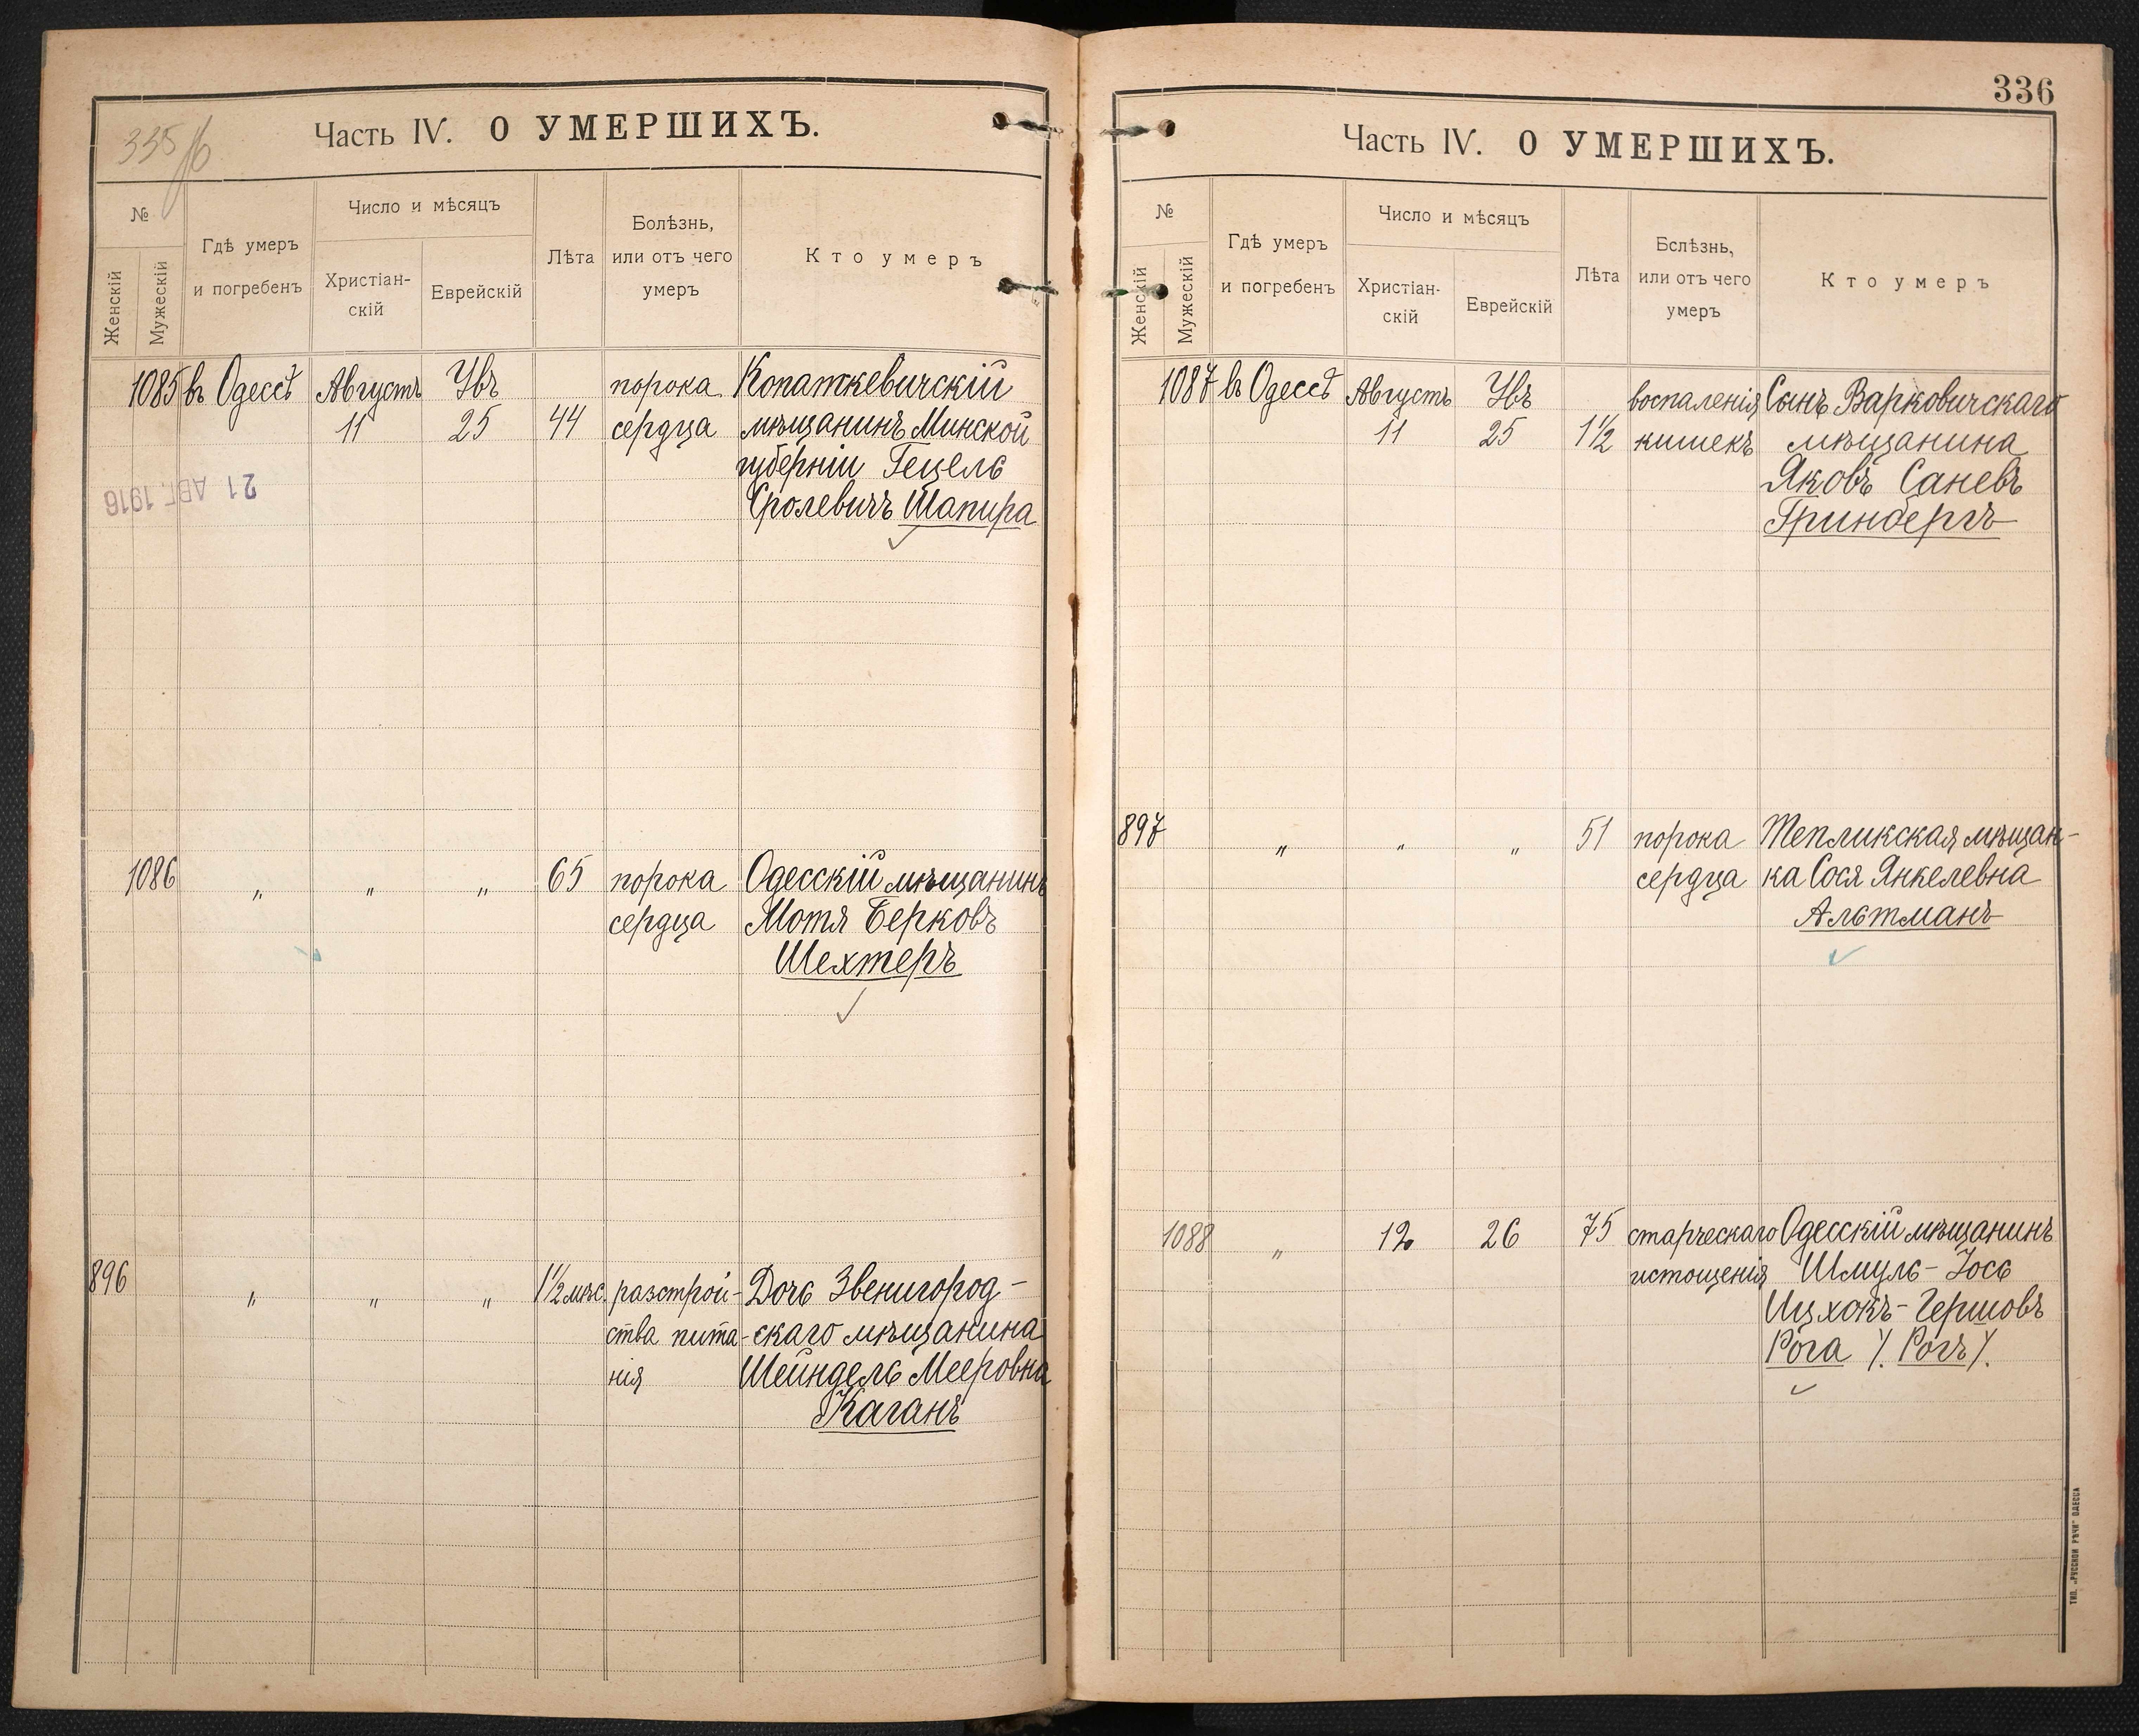 335/б
Часть IV. О УМЕРШИХЪ.
№
Женскій
Мужескій
Гдѣ умеръ
и погребенъ
Число и мѣсяцъ
Христіан-
скій
Еврейскій
Лѣта
Болѣзнь,
или отъ чего
умеръ
Кто умеръ
1085 въ Одессѣ Августъ Увъ порока Копаткевичскій
11 25 44 сердца мѣщанинъ Минской
губерніи Гецель
Сролевичъ Шапира
21 АВГ. 1916
1086 „ „ „ 65 порока Одесскій мѣщанинъ
сердца Мотя Берковъ
Шехтеръ
896 „ „ „ 1½ мѣс. разстрой- Дочь Звенигород-
ства пита- скаго мѣщанина
нія Шейндель Мееровна
Каганъ
336
Часть IV. О УМЕРШИХЪ.
№
Женскій
Мужескій
Гдѣ умеръ
и погребенъ
Число и мѣсяцъ
Христіан-
скій
Еврейскій
Лѣта
Бслѣзнь,
или отъ чего
умеръ
Кто умеръ
1087 въ Одессѣ Августъ Увъ воспаленія Сынъ Варковичскаго
11 25 1½ кишекъ мѣщанина
Яковъ Саневъ
Гринбергъ
897 „ „ „ 51 порока Тепликская мѣщан-
сердца ка Сося Янкелевна
Альтманъ
1088 „ 12 26 75 старческаго Одесскій мѣщанинъ
истощенія Шмуль-Іось
Ицхокъ-Гершовъ
Рога /. Рогъ /.
ТИП. „РУССКОЙ РѢЧИ" ОДЕССА